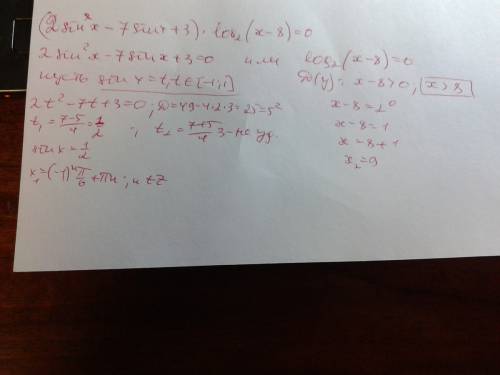 (2 sin²x − 7 sin x + 3) · log₂(x−8) = 0
2 sin²x − 7 sin x + 3 = 0 или log₂(x−8) = 0
пусть sin x = t, t ∈ [−1; 1] D(y): x−8>0, x>8
2t² − 7t + 3 = 0; D = 49 − 4·2·3 = 25 = 5² x−8 = 2⁰
t₁ = (7−5)/4 = 1/2; t₂ = (7+5)/4 3 − не уд. x−8 = 1
sin x = 1/2 x = 8+1
x₁ = (−1)ⁿ π/6 + πn; n ∈ Z x₂ = 9